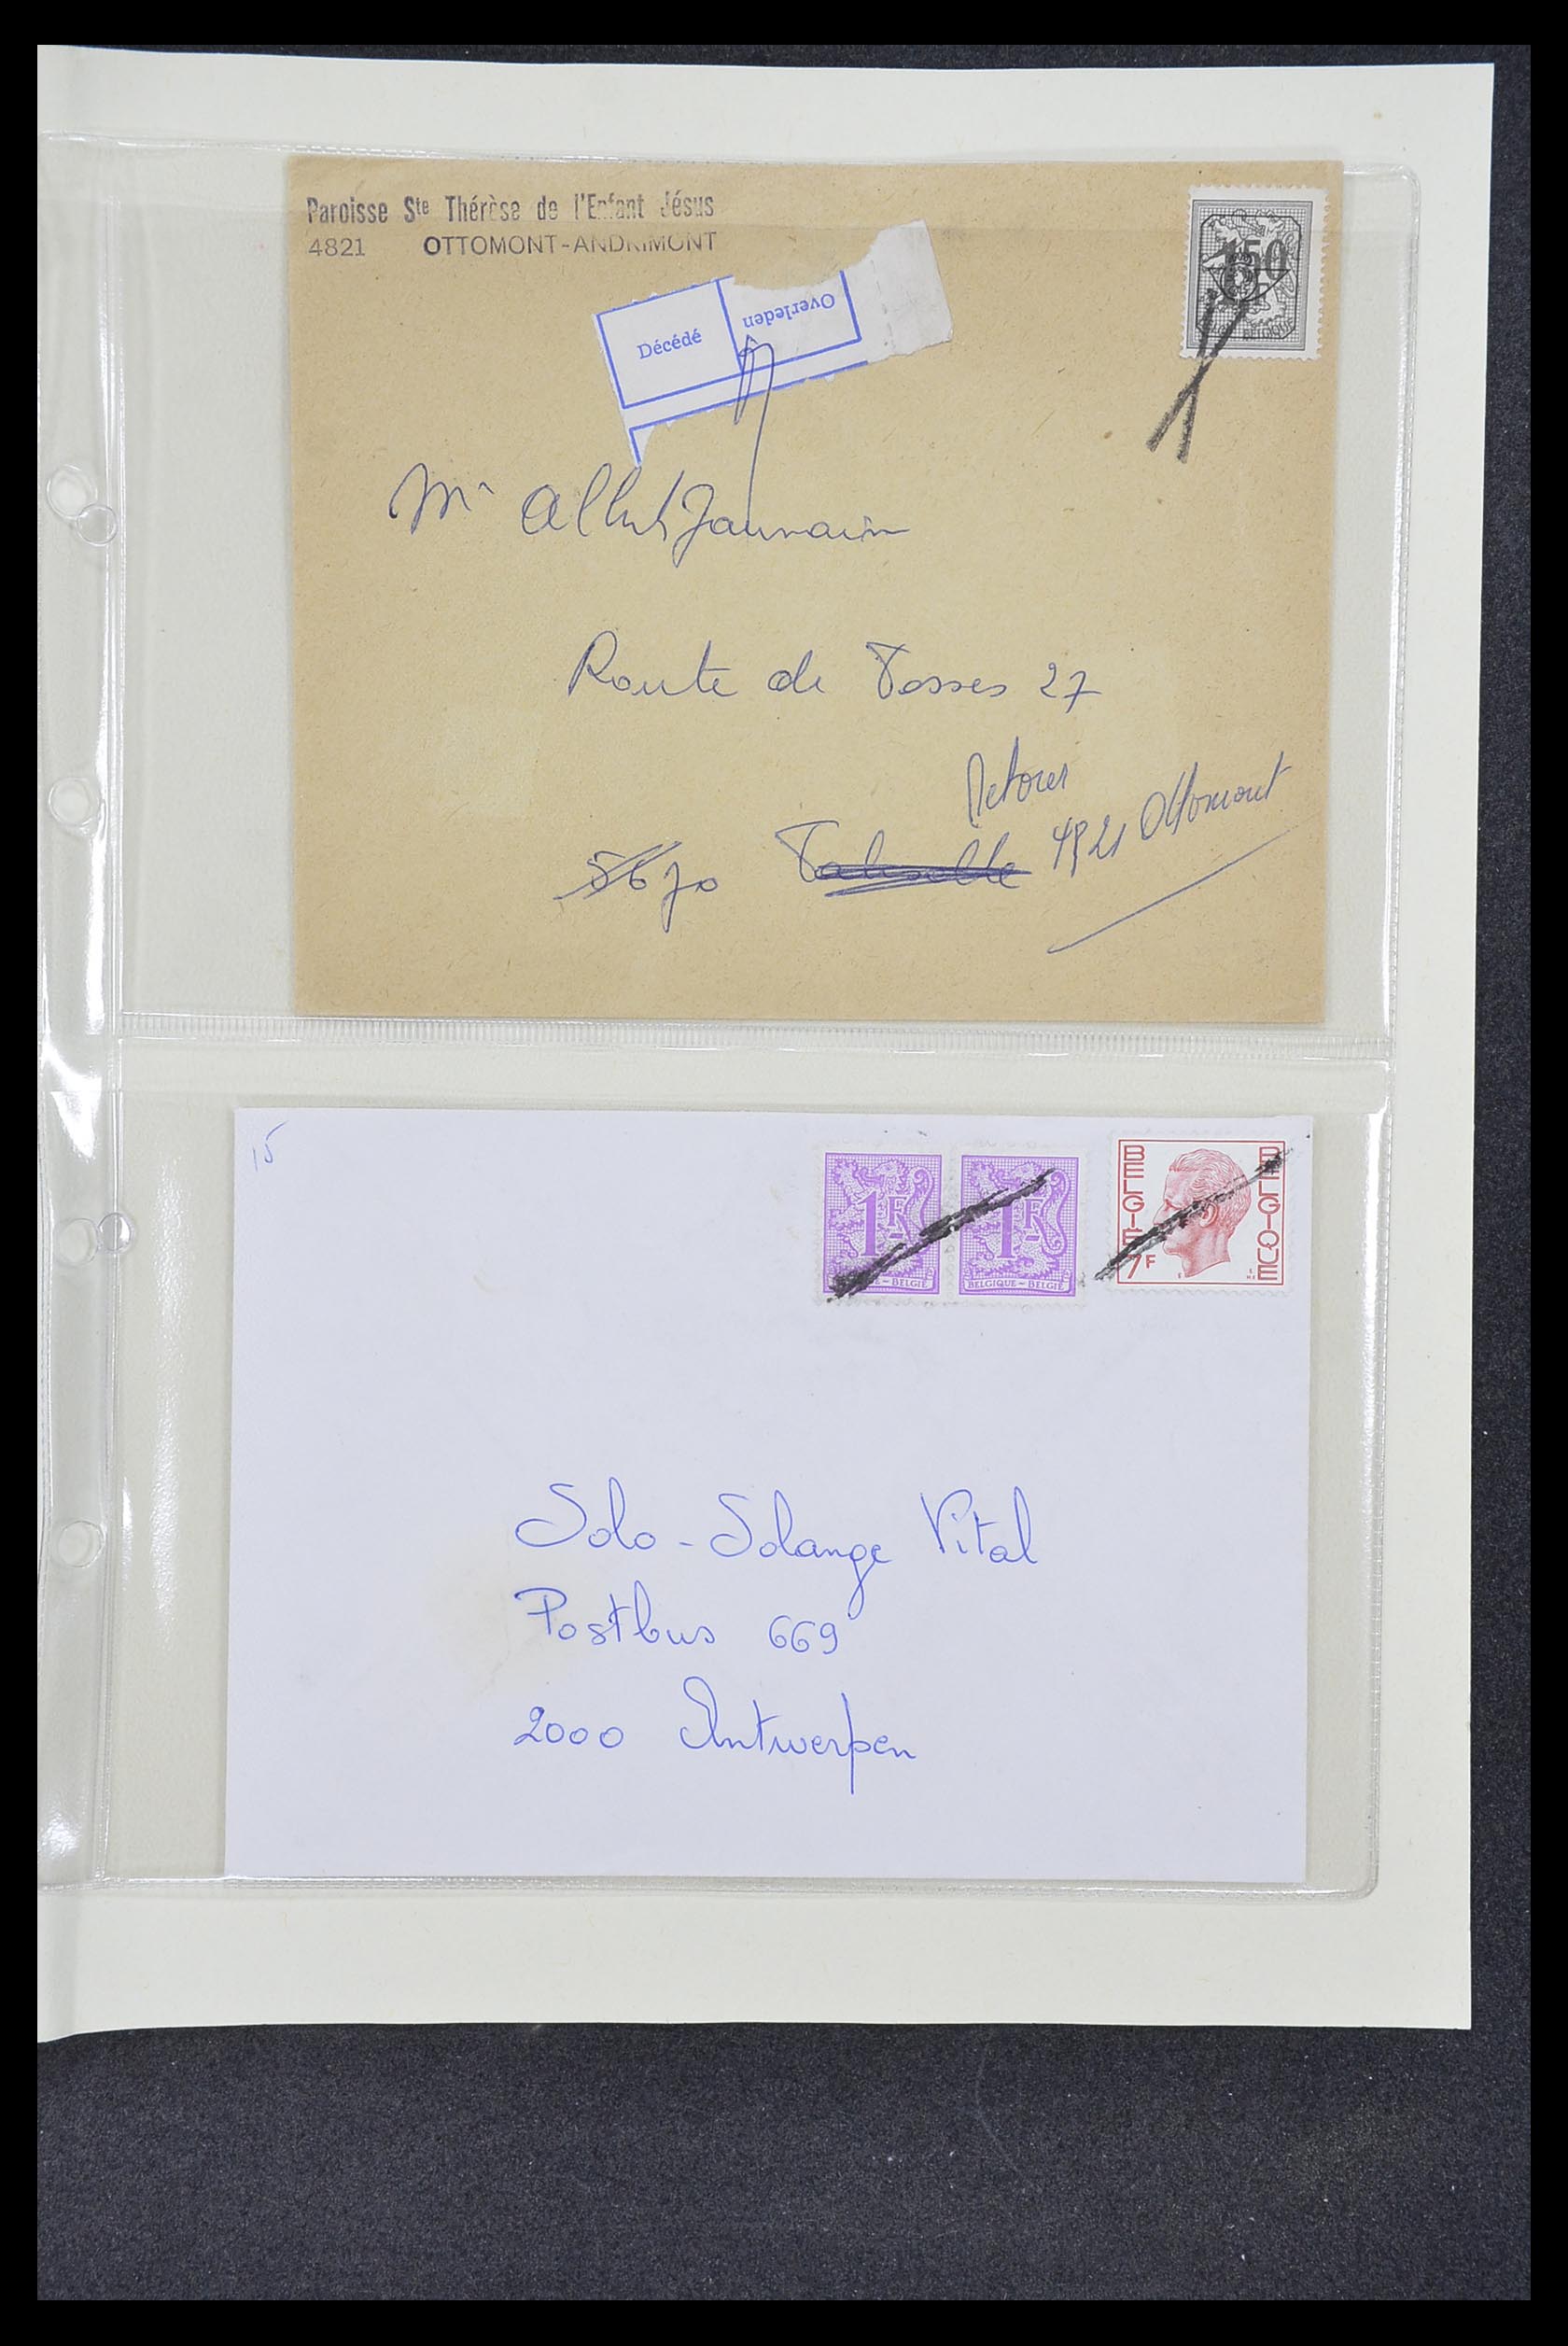 Paroisse Ste Thérèse de l'Enfant Jésus
4821 OTTOMONT-ANDRIMONT
1,50
BELGIQUE
Décédé
Overleden
Mr Albert Jaumain
Route de Fosses 27
Retour
5670
4821 Ottomont
15
1F
BELGIË
1F
BELGIQUE - BELGIË
BELGIE
BELGIQUE
7F
Solo - Solange Vital
Postbus 669
2000 Antwerpen